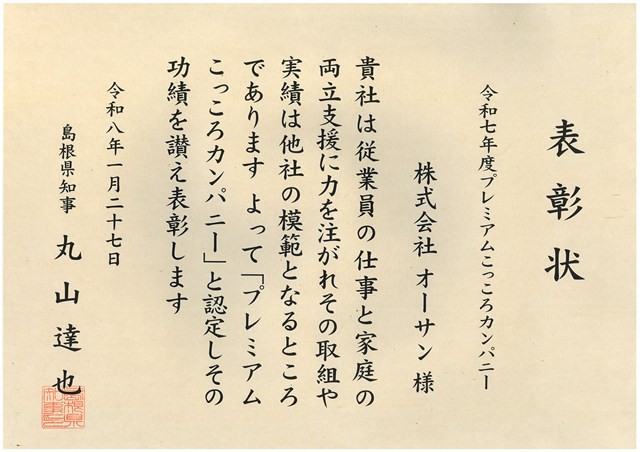 表彰状
令和七年度プレミアムこっころカンパニー
株式会社 オーサン 様
貴社は従業員の仕事と家庭の
両立支援に力を注がれその取組や
実績は他社の模範となるところ
であります よって「プレミアム
こっころカンパニー」と認定しその
功績を讃え表彰します
令和八年一月二十七日
島根県知事 丸山達也